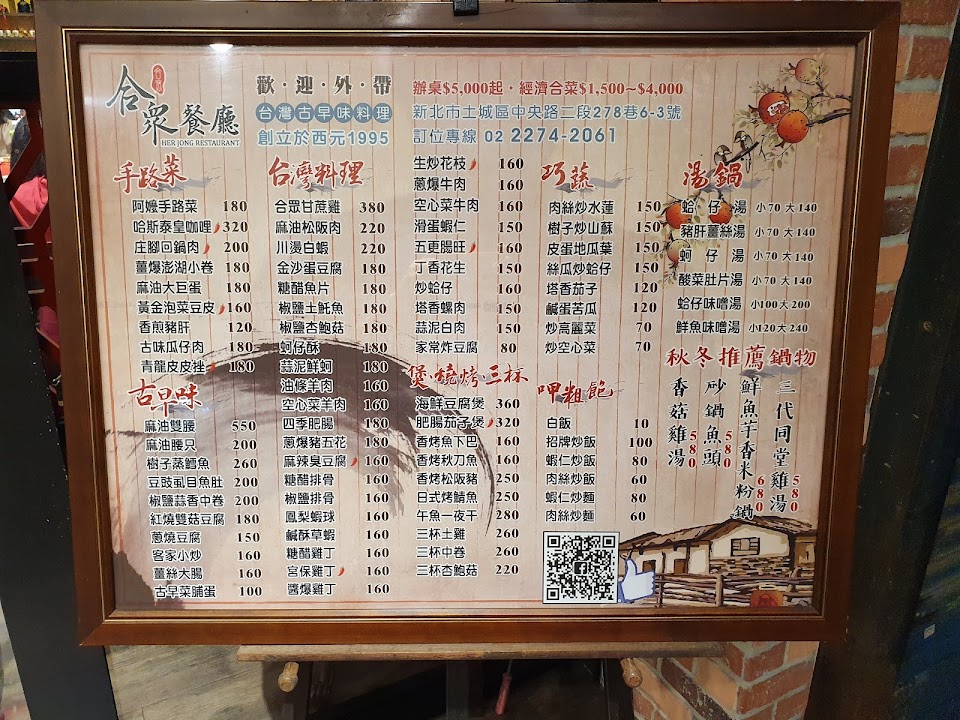 合眾餐廳
HER JONG RESTAURANT
歡·迎·外·帶
台灣古早味料理
創立於西元1995
辦桌$5,000起·經濟合菜$1,500~$4,000
新北市土城區中央路二段278巷6-3號
訂位專線 02 2274-2061
手路菜
阿嬤手路菜 180
哈斯泰皇咖哩 320
庄腳回鍋肉 200
薑爆澎湖小卷 180
麻油大巨蛋 180
黃金泡菜豆皮 160
香煎豬肝 120
古味瓜仔肉 180
青龍皮皮挫 180
古早味
麻油雙腰 550
麻油腰只 200
樹子蒸鱈魚 260
豆豉虱目魚肚 200
椒鹽蒜香中卷 200
紅燒雙菇豆腐 180
蔥燒豆腐 150
客家小炒 160
薑絲大腸 160
古早菜脯蛋 100
台灣料理
合眾甘蔗雞 380
麻油松阪肉 220
川燙白蝦 220
金沙蛋豆腐 180
糖醋魚片 180
椒鹽土魠魚 180
椒鹽杏鮑菇 180
蚵仔酥 180
蒜泥鮮蚵 180
油條羊肉 160
空心菜羊肉 160
四季肥腸 180
蔥爆豬五花 180
麻辣臭豆腐 160
糖醋排骨 160
椒鹽排骨 160
鳳梨蝦球 160
鹹酥草蝦 160
糖醋雞丁 160
宮保雞丁 160
醬爆雞丁 160
生炒花枝 160
蔥爆牛肉 160
空心菜牛肉 160
滑蛋蝦仁 150
五更腸旺 160
丁香花生 150
炒蛤仔 160
塔香螺肉 150
蒜泥白肉 150
家常炸豆腐 80
煲·燒烤·三杯
海鮮豆腐煲 360
肥腸茄子煲 320
香烤魚下巴 160
香烤秋刀魚 160
香烤松阪豬 250
日式烤鯖魚 250
午魚一夜干 280
三杯土雞 260
三杯中卷 260
三杯杏鮑菇 220
巧蔬
肉絲炒水蓮 150
樹子炒山蘇 150
皮蛋地瓜葉 150
絲瓜炒蛤仔 150
塔香茄子 120
鹹蛋苦瓜 120
炒高麗菜 70
炒空心菜 70
呷粗飽
白飯 10
招牌炒飯 100
蝦仁炒飯 80
肉絲炒飯 60
蝦仁炒麵 80
肉絲炒麵 60
湯鍋
蛤仔湯 小70 大140
豬肝薑絲湯 小70 大140
蚵仔湯 小70 大140
酸菜肚片湯 小70 大140
蛤仔味噌湯 小100 大200
鮮魚味噌湯 小120 大240
秋冬推薦鍋物
香菇雞湯 580
砂鍋魚頭 580
鮮魚芋香米粉鍋 680
三代同堂雞湯 580